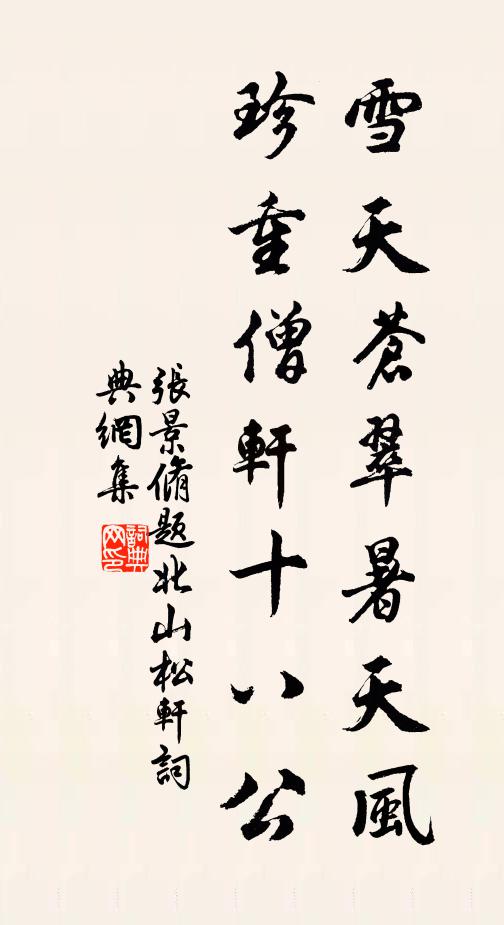 雪天蒼翠暑天風
珍重僧軒十八公
張景脩題北山松軒詞
典網集
詞典
网印